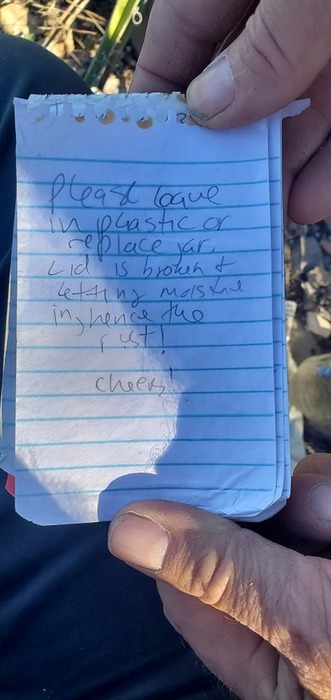 please leave
in plastic or
replace jar.
Lid is broken +
letting moisture
in, hence the
rust!
cheers!